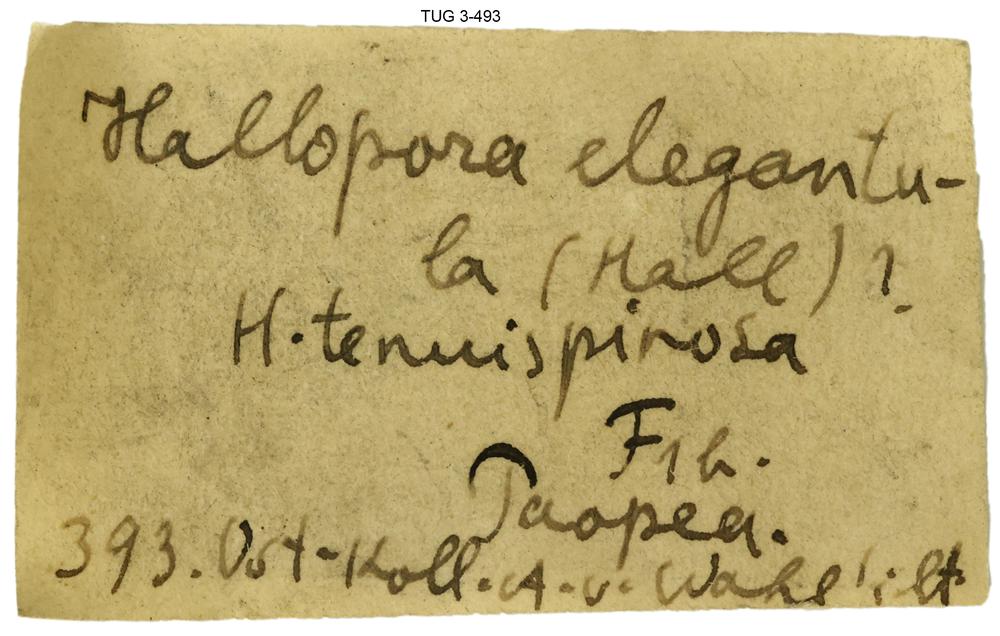 TUG 3-493
Hallopora elegantu-
la (Hall)?
H. tenuispinosa
F1b.
Paopea.
393. Ost-Koll. A. v. Wahl'ilt